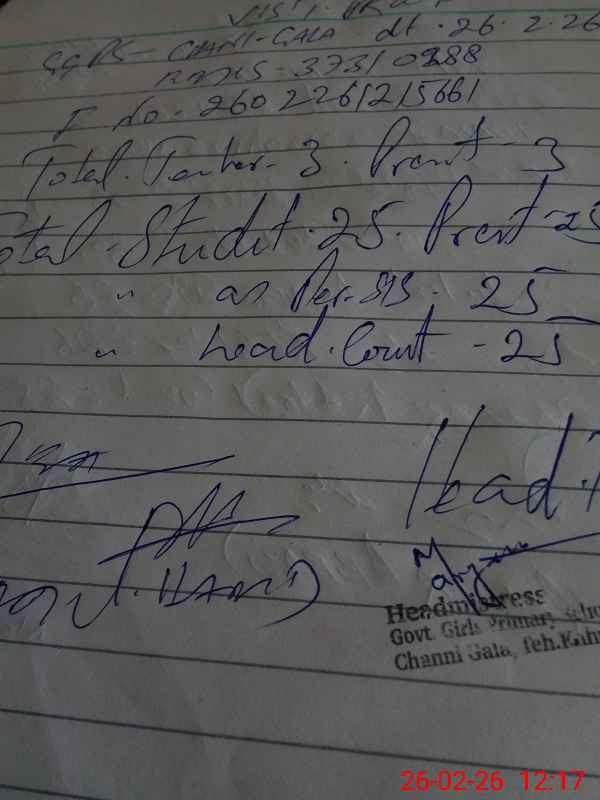 GGPS - CHANI-GALA dt. 26.2.26
EMIS - 37310288
I No. 2602261215661
Total. Teacher - 3. Prent - 3
Total - Studet. 25. Prent - 25
" as Per. SIS. 25
" head. Count - 25
Head
Headmistress
Govt. Girls Primary
Channi Gala, Teh. Kahu
26-02-26 12:17